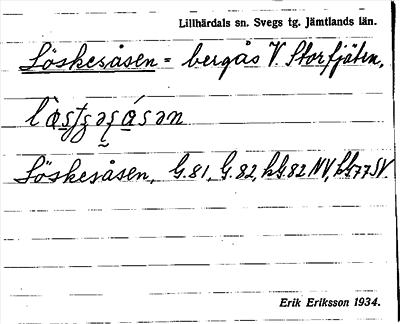 Lillhärdals sn. Svegs tg. Jämtlands län.
Löskesåsen = bergås V. Storfjäten,
Löskesåsen, G.81, G.82, kG.82 NV, kG77 SV.
Erik Eriksson 1934.